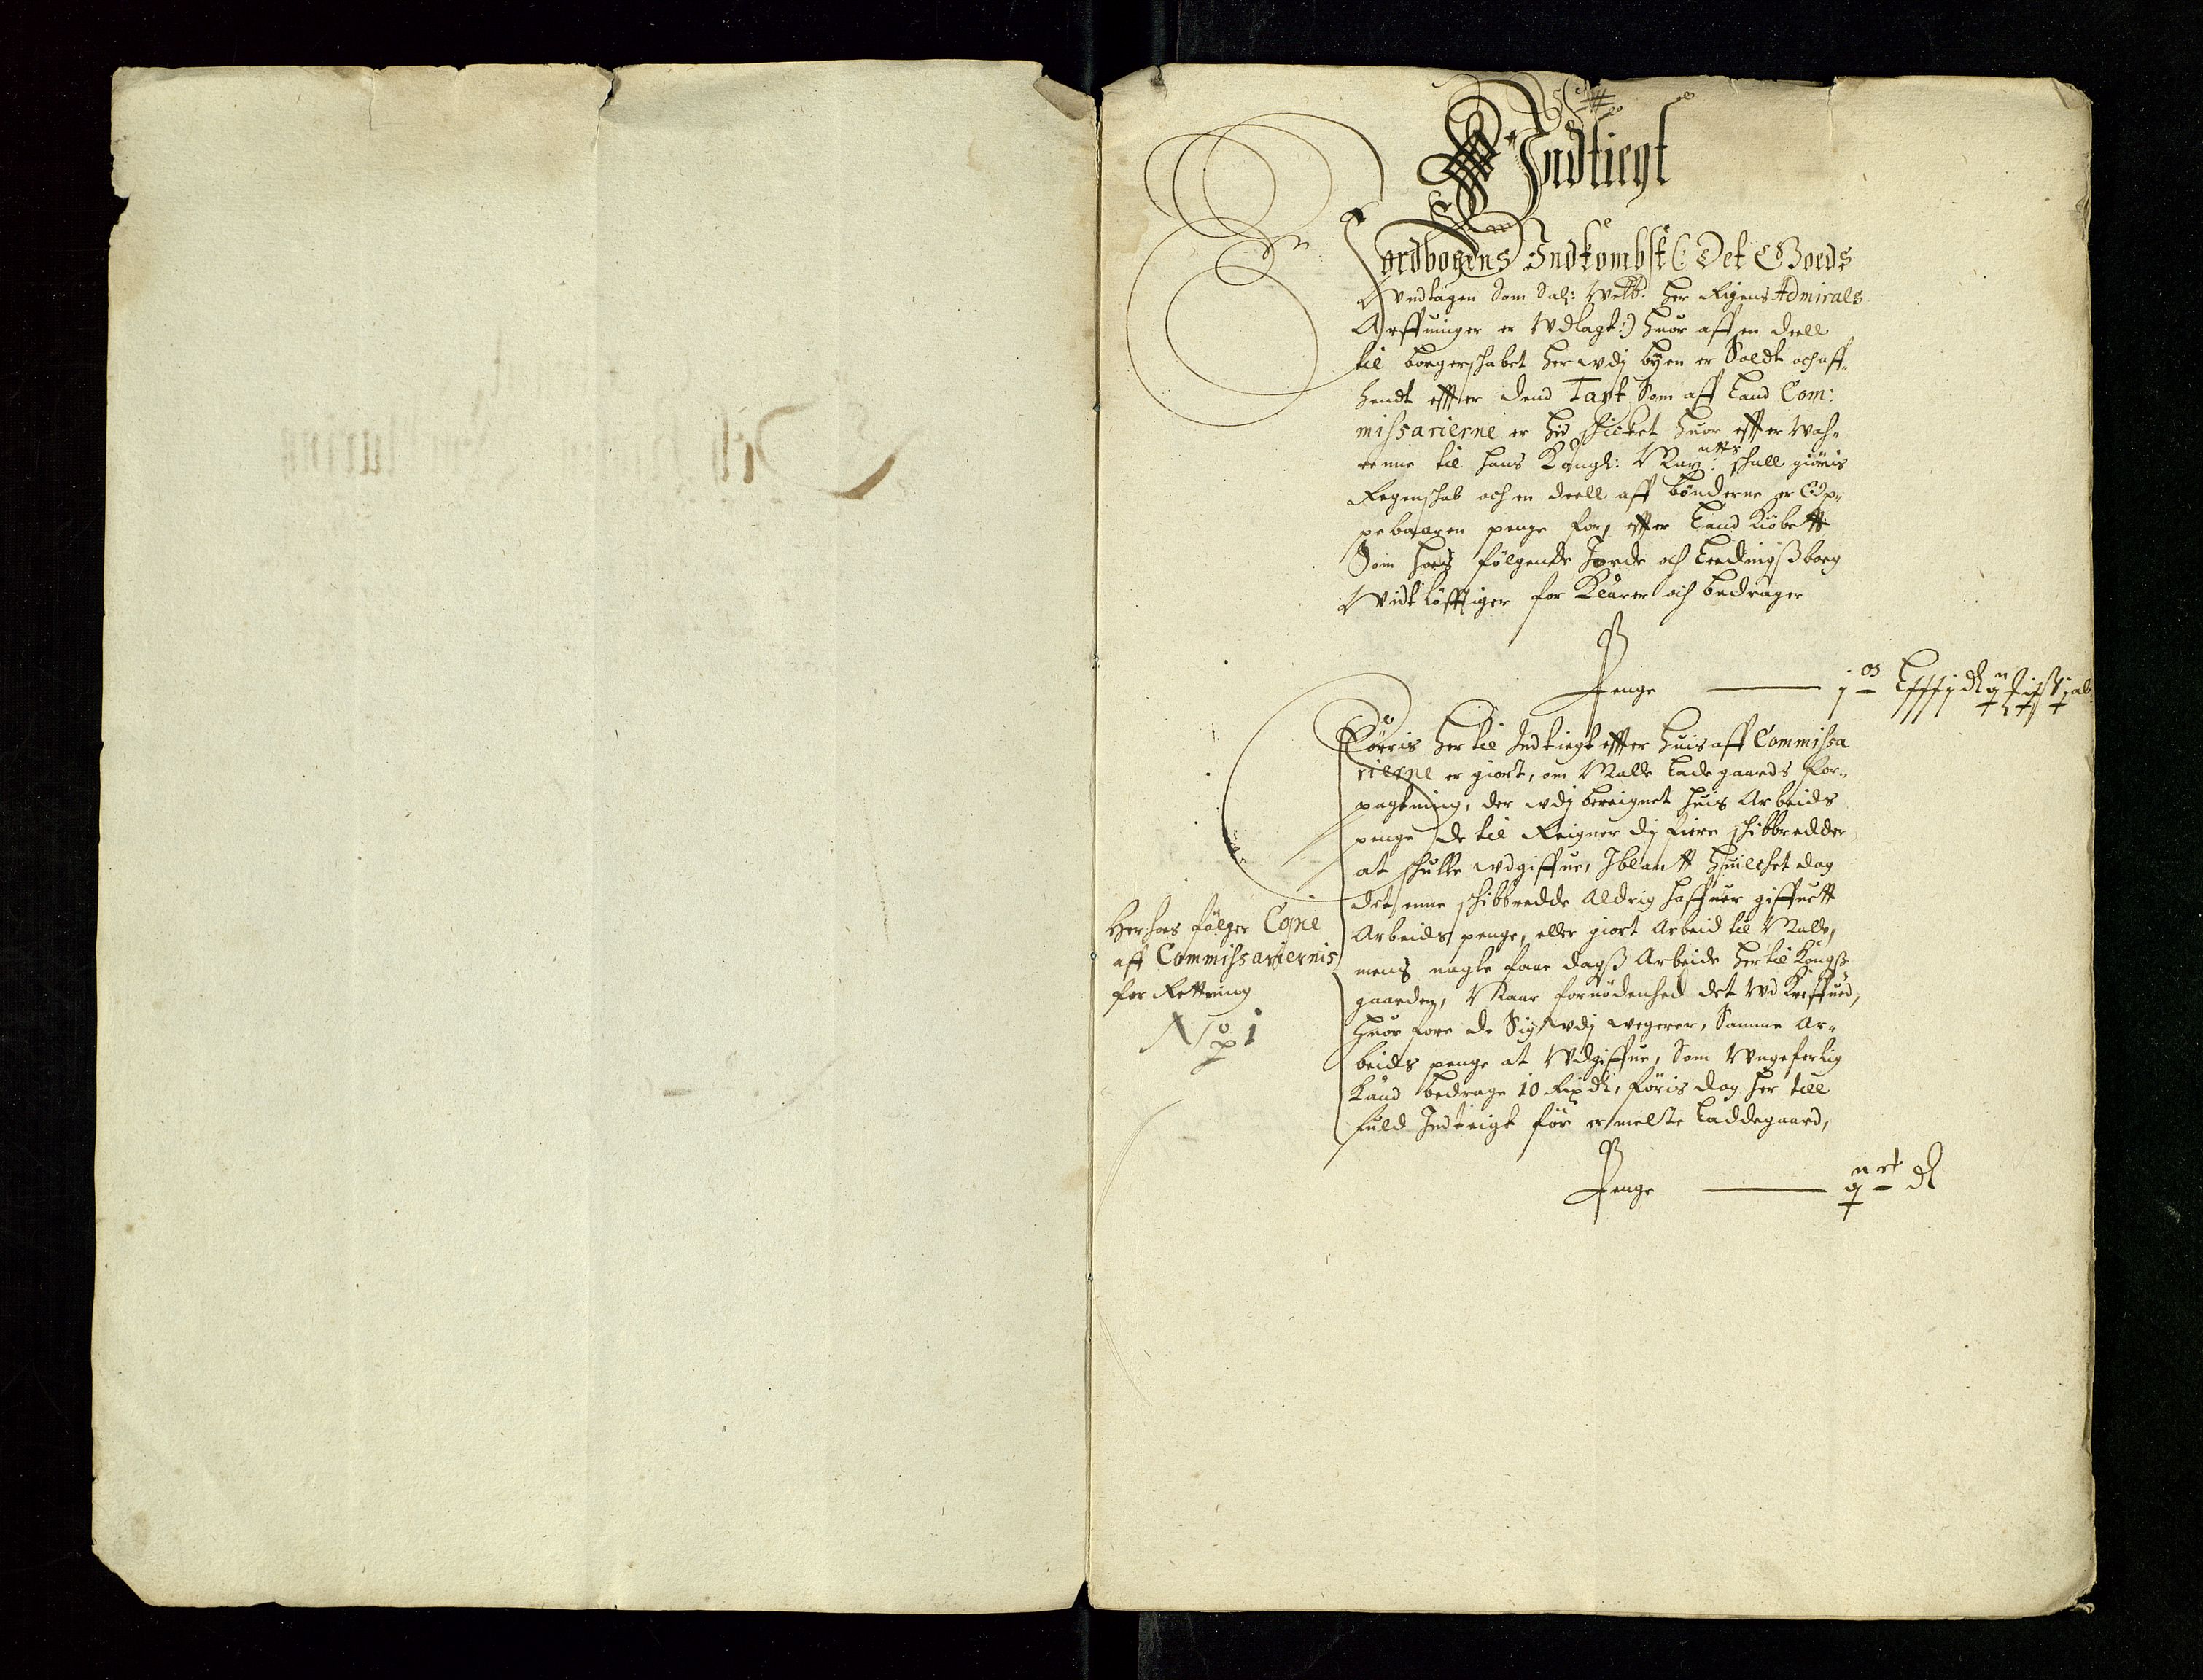 Indtiegt
Jordbogens Indkombst (Det Goeds
Vndtagen Som Sal: Welb: Her Rigens Admirals
Arffuinger er Wdlagt:) huor aff en deell
til borgerschabet her wdj byen er Soldt och aff-
hendt effter dend Taxt Som aff Land Com:
missarierne er hid schicket huor effter Wah-
renne til hans Kongl: May: ntts schall giöris
Regenschab och en deell aff bönderne er Op-
pebaaren penge for, effter Land Kiöbett
Som hoes fölgende Jorde och Ledingßborg
Widtlöfftiger for Klarer och bedrager
Penge
Föeris her til Indtiegt effter huis aff Commissa
rierne er giort, om Malde Ladegaards for-
pagtning, der wdj bereignet huis Arbeids
penge de til Reigner dj fiere schibbredder
at schulle wdgiffue, Iblantt huilchet dog
det enne schibbredde Aldrig haffuer giffuett
Arbeids penge, eller giort Arbeid til Malde,
mens nogle faae dagß Arbeide her til Kongß
gaarden, Naar fornödenhed det Wd Kreffued,
huor fore de Sig wdj wegerer, Samme Ar-
beids penge at Wdgiffue, Som Wngeferlig
Kand bedrage 10 Rixdl, föris dog her till
fuld Indteigt för ermelte Laddegaard,
Penge
Her hoes fölger Copie
aff Commissariernis
for Rettning
No 1